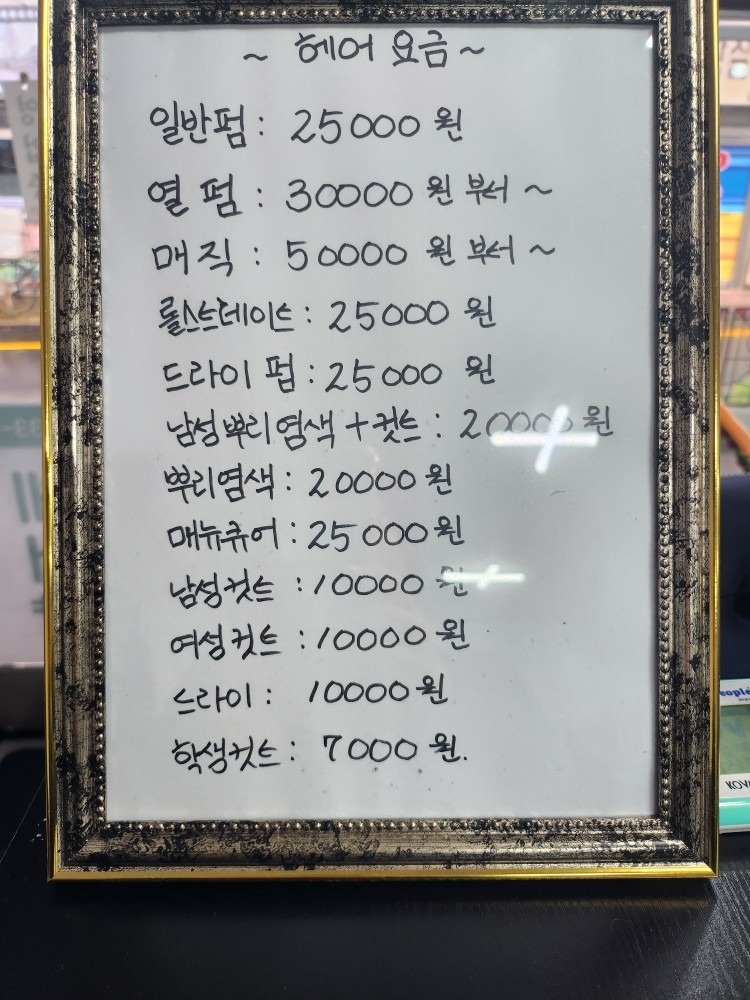 ~ 헤어 요금 ~
일반펌 : 25000 원
열 펌 : 30000 원 부터 ~
매직 : 50000 원 부터 ~
롤스트레이트 : 25000 원
드라이 펌 : 25000 원
남성뿌리염색 + 컷트 : 20000 원
뿌리염색 : 20000 원
매뉴큐어 : 25000 원
남성컷트 : 10000 원
여성컷트 : 10000 원
드라이 : 10000 원
학생컷트 : 7000 원.
eople
KOV